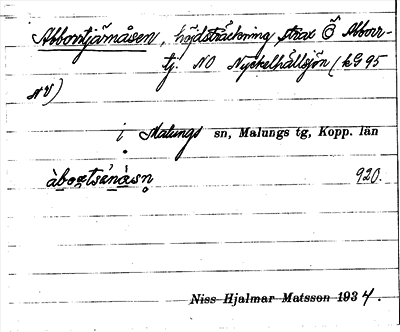 Abborrtjärnåsen, höjdsträckning, strax Ö Abborr-
tj. NO Nyckelhållsjön (kG 95
NV)
i Malungs sn, Malungs tg, Kopp. län
920.
Niss Hjalmar Matsson 1934.